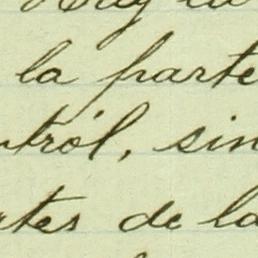 la parte
ntról, sin
rtes de la